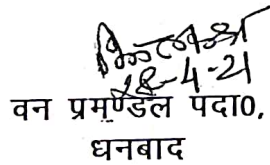 28-4-21
वन प्रमण्डल पदा0,
धनबाद